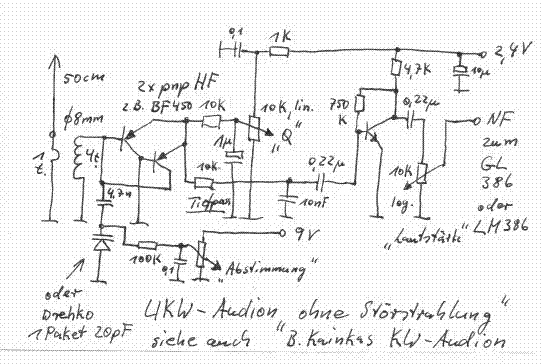 0,1
1K
2,4V
50cm
2x pnp HF
z.B. BF450
10K
10K, lin.
"Q"
4,7K
10µ
750
K
0,22µ
NF
zum
GL
386
oder
LM386
ϕ8mm
1
t.
4t.
1µ
10K
Tiefpass
0,22µ
10nF
10K
log.
"Lautstärke"
4,7n
9V
100K
0,1
"Abstimmung"
oder
Drehko
1 Paket 20pF
UKW-Audion "ohne Störstrahlung"
siehe auch "B. Kainkas KW-Audion